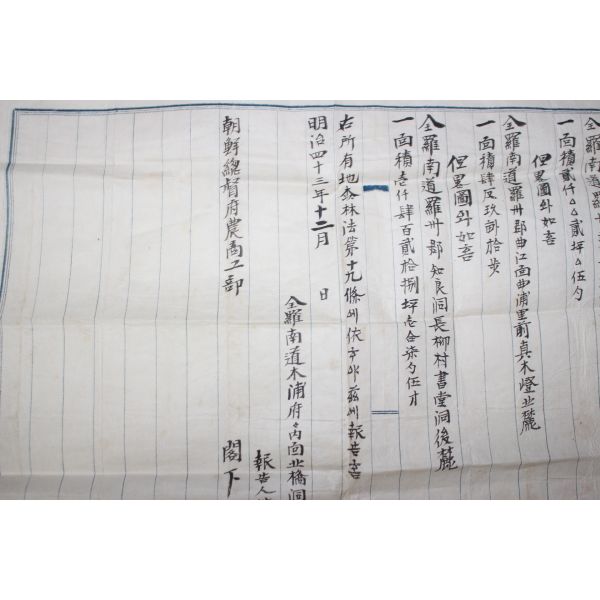 全羅南道羅州
一面積貳仟△△貳坪△伍勺
但畧圖와如喜
全羅南道羅州郡曲江面曲浦里前真木嶝北麓
一面積肆反玖畝拾步
但畧圖와如喜
全羅南道羅州郡知良洞長柳村書堂洞後麓
一面積壱仟肆百貳拾捌坪壱合柒勺伍才
右所有地森林法第十九條에依하야玆에報告喜
明治四十三年十二月 日
全羅南道木浦府々內面北橋洞
報告人
朝鮮總督府農商工部 閣下